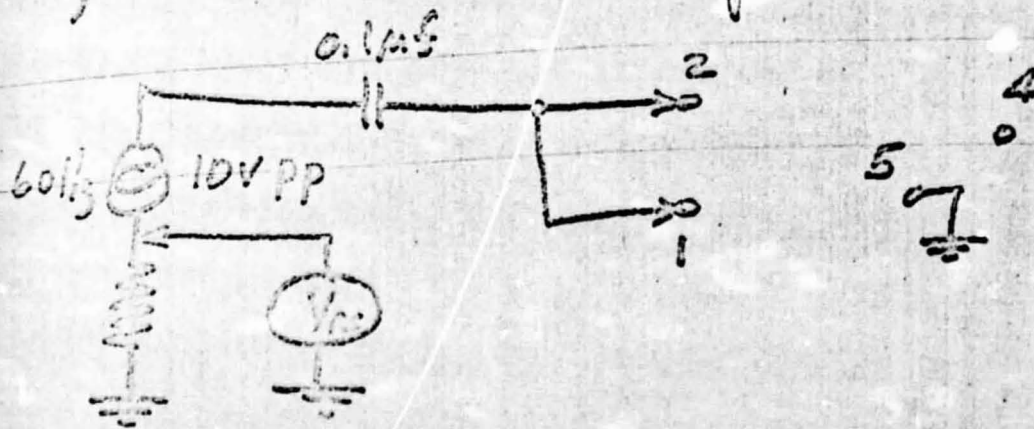 0.1μf
2
4
60Hz 10V PP
5
1